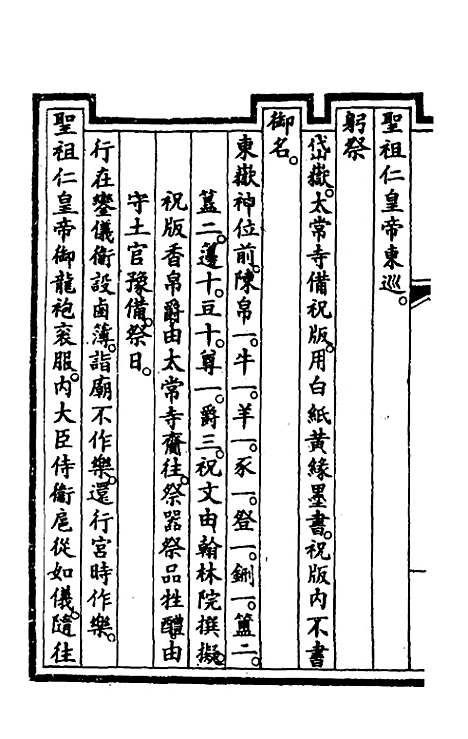 聖祖仁皇帝東巡。
躬祭
岱嶽。太常寺備祝版。用白紙黃緣墨書。祝版内不書
御名。
東嶽神位前。陳帛一。牛一。羊一。豕一。登一。鉶一。簠二。
簋二。籩十。豆十。尊一。爵三。祝文由翰林院撰擬。
祝版香帛爵由太常寺齎往。祭器祭品牲醴由
守土官豫備。祭日。
行在鑾儀衞設鹵簿。詣廟不作樂。還行宮時作樂。
聖祖仁皇帝御龍袍衮服。内大臣侍衞扈從如儀。隨往